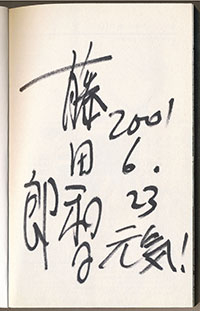 2001
6.
23
元気!
藤田和日
郎